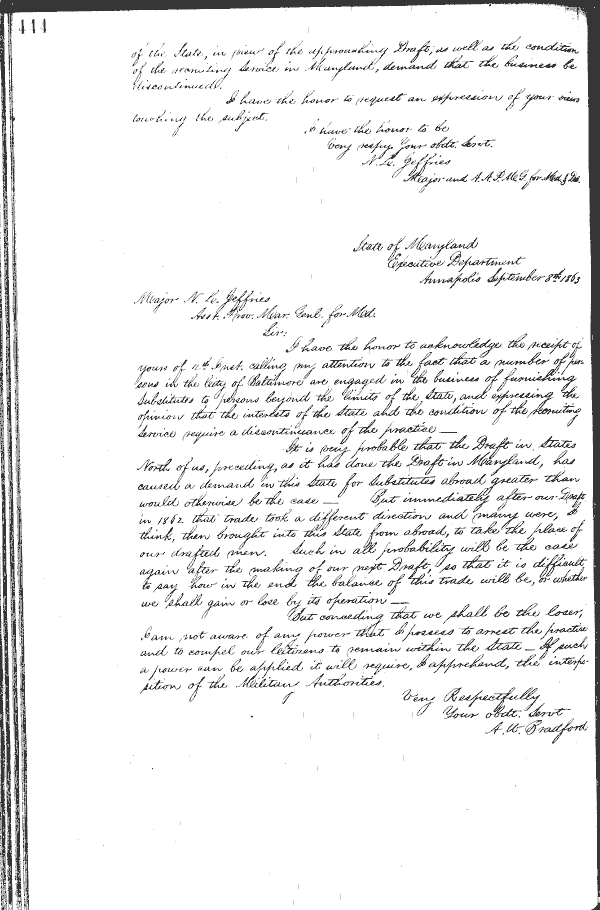 414
of the State, in view of the approaching Draft, as well as the condition
of the recruiting service in Maryland, demand that the business be
discontinued.
I have the honor to request an expression of your views
touching the subject.
I have the honor to be
Very respy. Your obdt. Servt.
N. L. Jeffries
Major and A.A.P.M.G. for Md. & Del.
State of Maryland
Executive Department
Annapolis September 8th 1863
Major N. L. Jeffries
Asst. Prov. Mar. Genl. for Md.
Sir:
I have the honor to acknowledge the receipt of
yours of 4th Inst. calling my attention to the fact that a number of per-
sons in the City of Baltimore are engaged in the business of furnishing
Substitutes to persons beyond the limits of the State, and expressing the
opinion that the interests of the State and the condition of the recruiting
service require a discontinuance of the practice —
It is very probable that the Draft in States
North of us, preceding, as it has done the Draft in Maryland, has
caused a demand in this State for Substitutes abroad greater than
would otherwise be the case — But immediately after our Draft
in 1862 that trade took a different direction and many were, I
think, then brought into this State from abroad, to take the place of
our drafted men. Such in all probability will be the case
again after the making of our next Draft, so that it is difficult
to say how in the end the balance of this trade will be, or whether
we shall gain or lose by its operation —
But conceding that we shall be the loser,
I am not aware of any power that I possess to arrest the practice
and to compel our Citizens to remain within the State — If such
a power can be applied it will require, I apprehend, the interpo-
sition of the Military Authorities.
Very Respectfully
Your obdt. Servt
A. W. Bradford